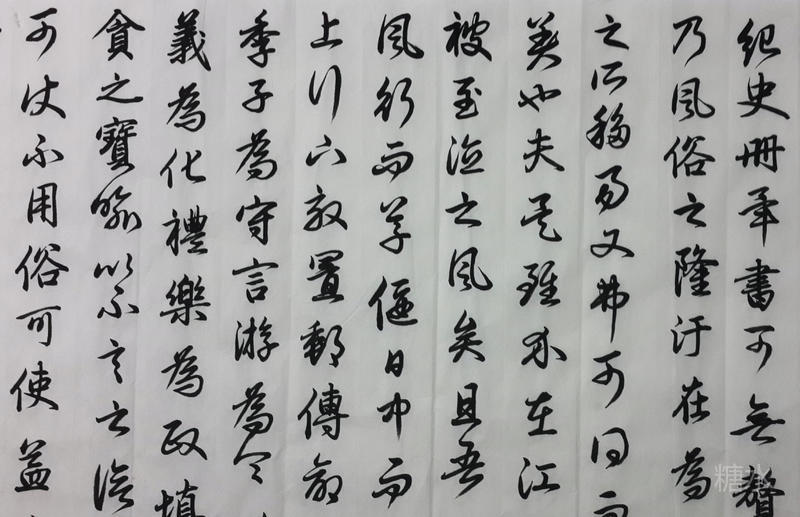 纪史册年书可无声
乃風俗之隆汙在為
之所移易又弗可同而
美也夫是雖不在江
被至治之風矣且吾
風行而草偃日中而
上行下效置郵傳命
季子為守言游為令
義為化禮樂為政填
貪之寶喻以不言之
可仗不用俗可使益
糖